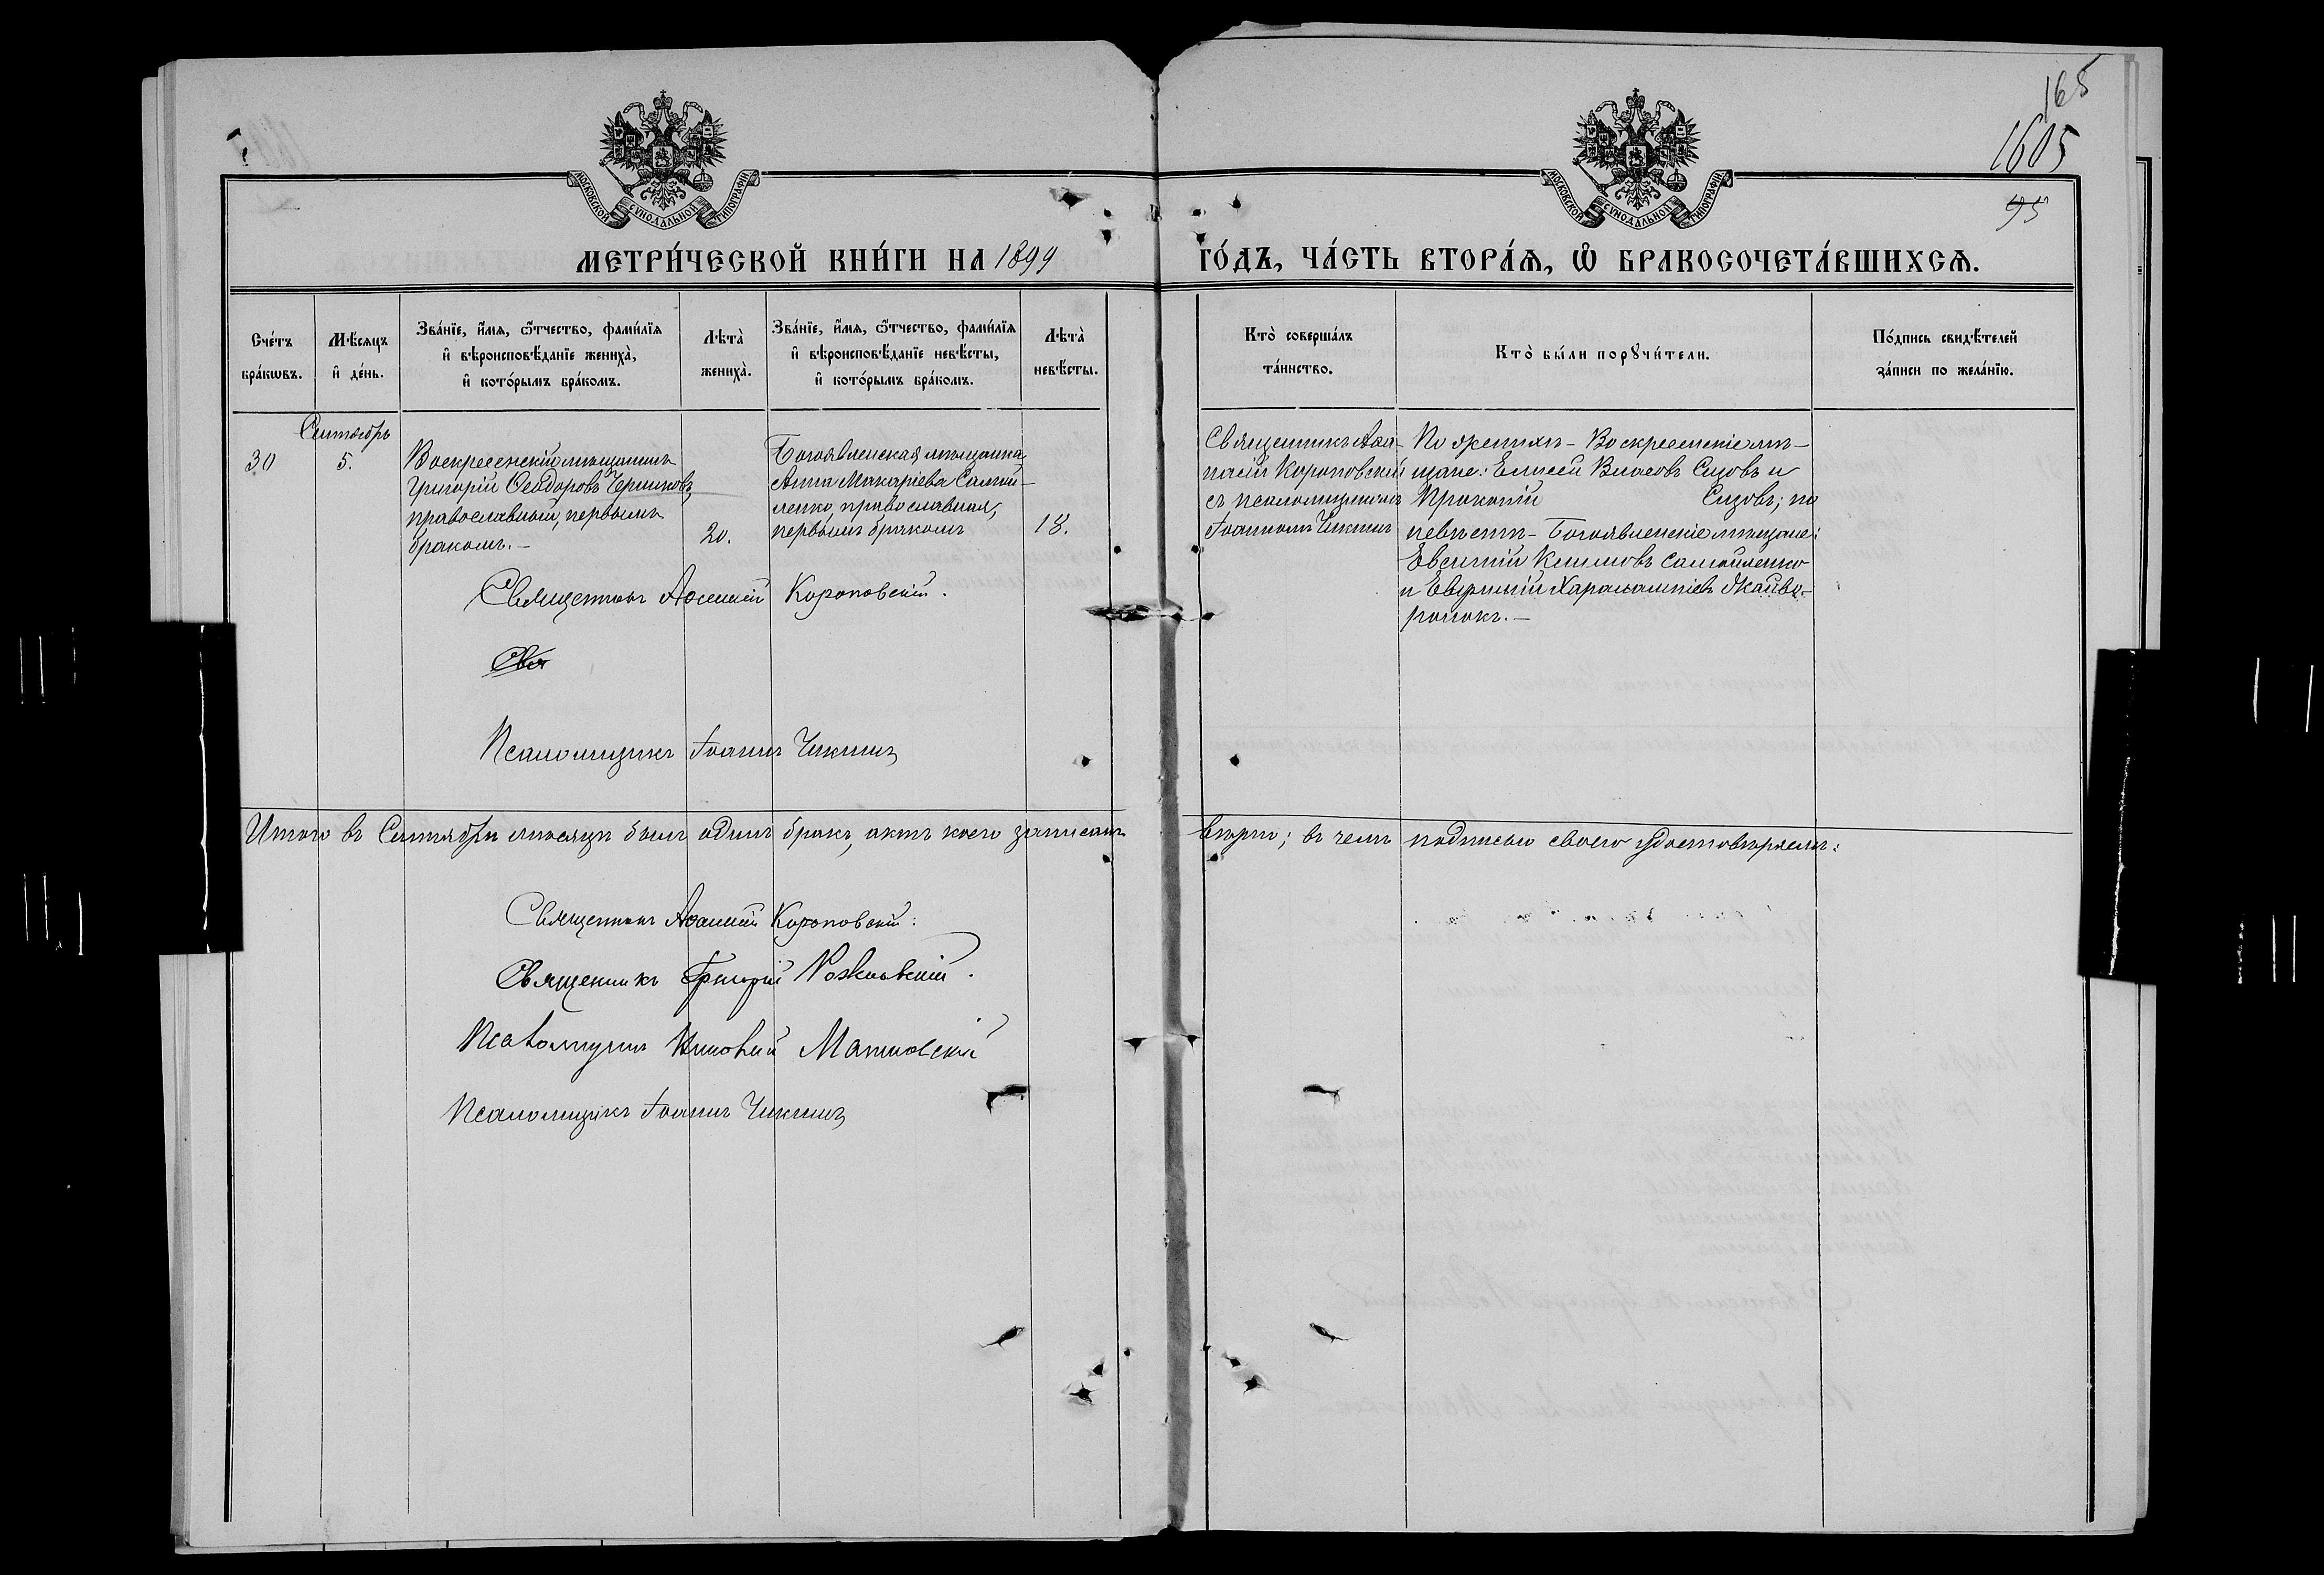 165
1605
95
МОСКОВСКОЙ СѴНОДАЛЬНОЙ ТИПОГРАФІИ
МОСКОВСКОЙ СѴНОДАЛЬНОЙ ТИПОГРАФІИ
МЕТРИ́ЧЕСКОЙ КНИ́ГИ НА 1899 ГО́ДЪ, ЧА́СТЬ ВТОРА́Ѧ, Ѡ҆ БРАКОСОЧЕТА́ВШИХСѦ.
Сче́тъ
бра́кѡвъ.
Мѣ́сяцъ
и҆ де́нь.
Зва́нїе, и҆́мѧ, ѻ҆́тчество, фами́лїѧ
и҆ вѣроисповѣ́данїе жениха̀,
и҆ кото́рымъ бра́комъ.
Лѣта̀
жениха̀.
Зва́нїе, и҆́мѧ, ѻ҆́тчество, фами́лїѧ
и҆ вѣроисповѣ́данїе невѣ́сты,
и҆ кото́рымъ бра́комъ.
Лѣта̀
невѣ́сты.
Кто̀ соверша́лъ
та́инство.
Кто̀ бы́ли порꙋчи́тели.
По́дпись свидѣ́телей
за́писи по жела́нїю.
Сентябрь
30
5.
Воскресенскій мѣщанинъ
Григорій Ѳеодоровъ Черниковъ,
православный, первымъ
бракомъ.—
20.
Богоявленская мѣщанка
Анна Макаріева Самой-
ленко, православная,
первымъ бракомъ
18.
Священникъ Аѳа-
насій Короповскій
съ псаломщикомъ
Іоанномъ
По женихѣ - Воскресенскіе мѣ-
щане: Елисей Власовъ Сизовъ и
Прокопій Сизовъ; по
невѣстѣ - Богоявленскіе мѣщане:
Евсигній Климовъ Самойленко
и Евфимій Харалампіевъ Жайво-
ронокъ.—
Священникъ Аѳанасій Короповскій.
Свя
Псаломщикъ Іоаннъ
Итого въ Сентябрѣ мѣсяцѣ былъ одинъ бракъ, актъ коего записанъ вѣрно; въ чемъ подписью своею удостовѣряемъ:
Священникъ Аѳанасій Короповскій.
Священникъ Григорій
Псаломщикъ
Псаломщикъ Іоаннъ